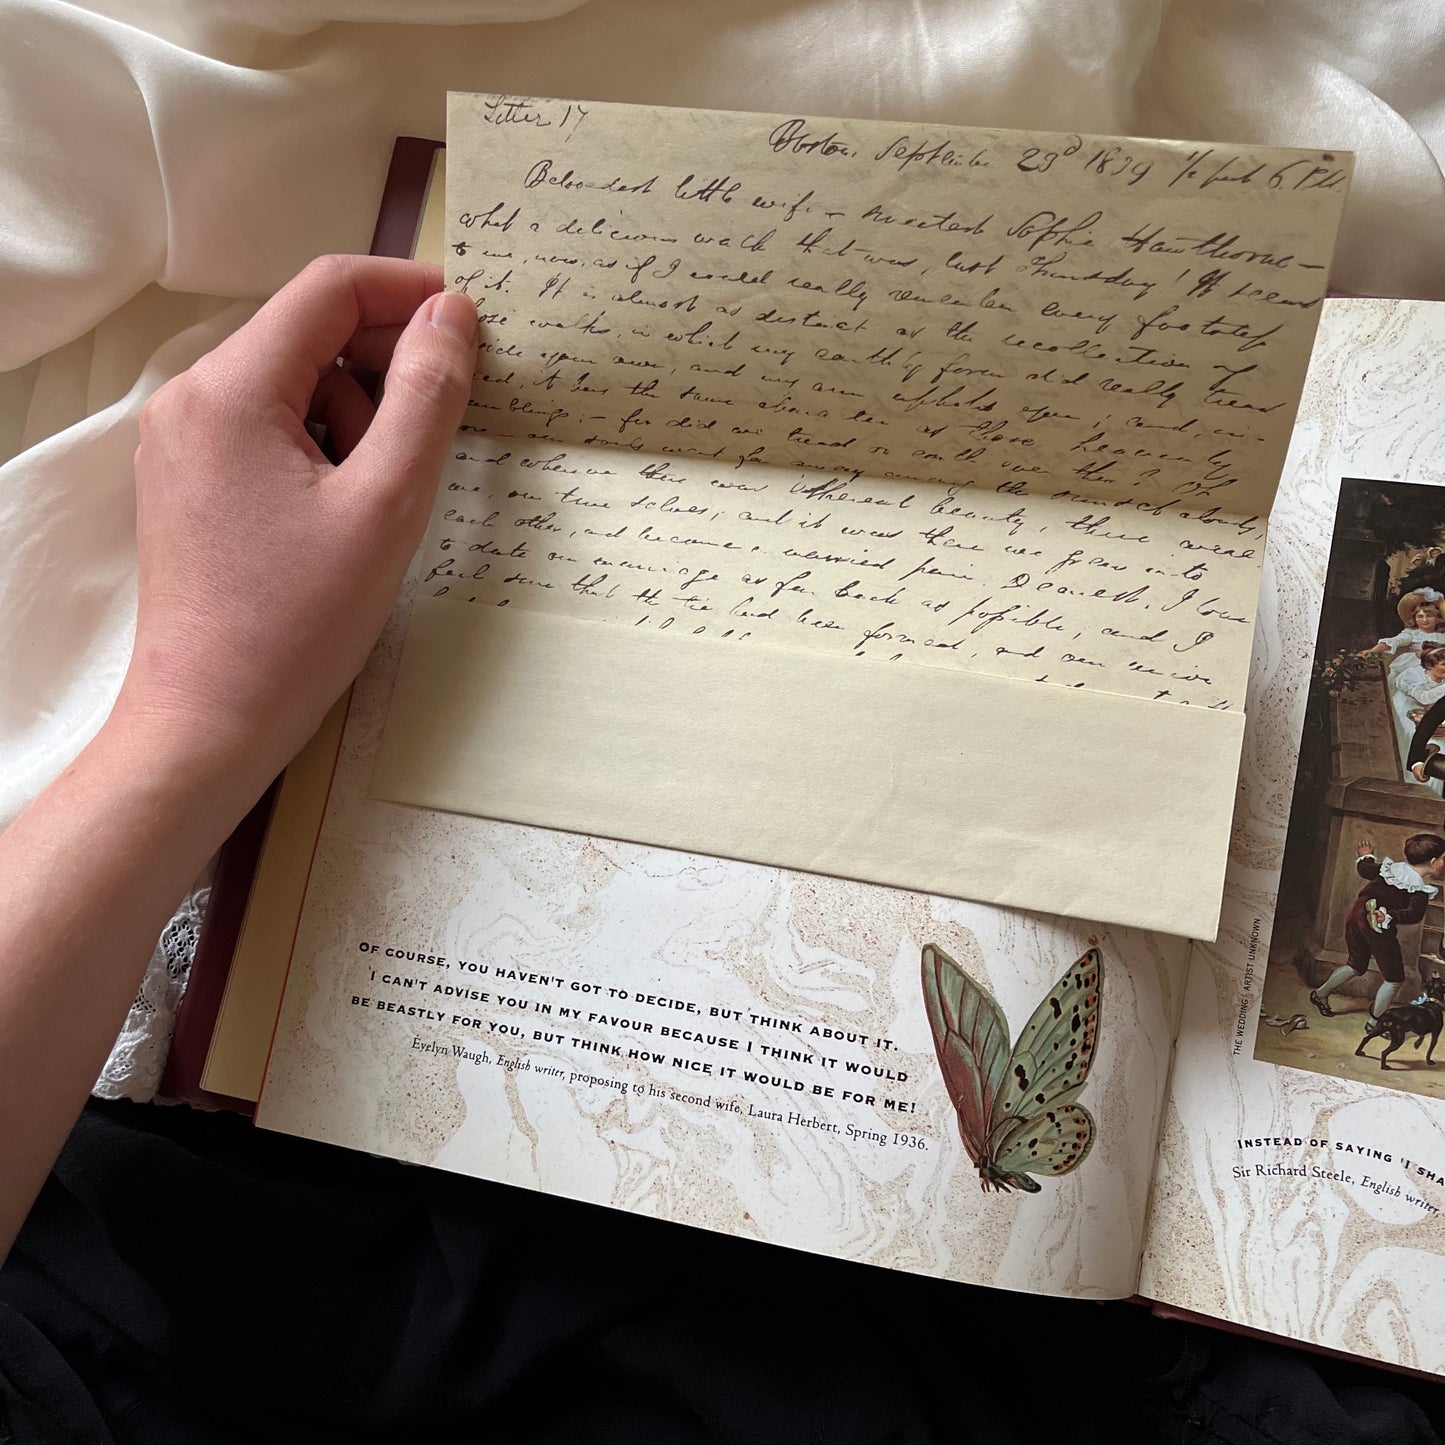 Letter 17
Boston, September 23d 1839 1/2 past 6. P.M.
Beloved little wife — sweetest Sophie Hawthorne —
what a delicious walk that was, last Thursday! It seems
to me, now, as if I could really remember every footstep
of it. It is almost as distinct as the recollection of
those walks, in which my earthly form did really tread
beside your own, and my arm upheld you; and, in-
deed, it has the same character as those heavenly
ramblings; – for did we tread on earth even then? Oh
no – our souls went far away among the sunset clouds,
and wherever there was ethereal beauty, there were
we, our true selves; and it was there we grew into
each other, and became a married pair. Dearest, I love
to date our marriage as far back as possible, and I
feel sure that the tie had been formed, and our union
OF COURSE, YOU HAVEN'T GOT TO DECIDE, BUT THINK ABOUT IT.
I CAN'T ADVISE YOU IN MY FAVOUR BECAUSE I THINK IT WOULD
BE BEASTLY FOR YOU, BUT THINK HOW NICE IT WOULD BE FOR ME!
Evelyn Waugh, English writer, proposing to his second wife, Laura Herbert, Spring 1936.
THE WEDDING, ARTIST UNKNOWN
INSTEAD OF SAYING 'I SHA
Sir Richard Steele, English writer,